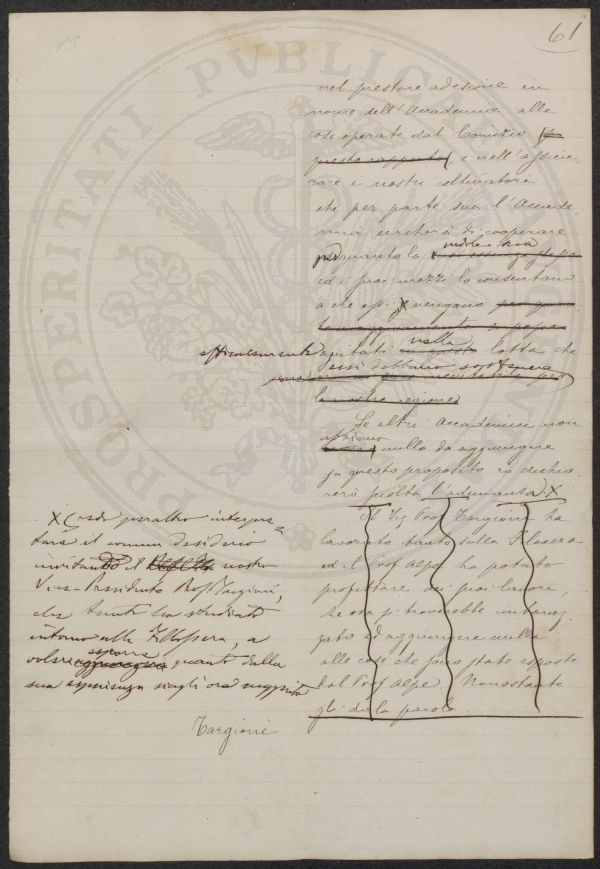 61
13
nel prestare adesione in
nome dell'Accademia alle
cose operate dal Comizio
questo rapporto, e nell'assicu-
rare i nostri coltivatori
che per parte sua l'Accade-
mia cercherà di cooperare
per quanto la
ed i suoi mezzi lo consentano
a che essi vengano
efficacemente aiutati nella lotta che
essi debbano sostenere
le nostre regioni
Se altri Accademici non
abbiano nulla da aggiungere
su questo proposito io dichia-
rerò sciolta l'adunanza X
Il Sig Prof Targioni ha
lavorato tanto sulla Filossera
ed il Prof Alpe ha potuto
profittare dei suoi lavori,
che ora si troverebbe imbaraz-
zato ad aggiungere nulla
alle cose che sono state esposte
dal Prof Alpe. Nonostante
gli do la parola.
X Credo peraltro interpre-
tare il comun desiderio
invitando il nostro
Vice-Presidente Prof Targioni,
che tanto ha studiato
intorno alla Fillossera, a
volere esporre quanto dalla
sua esperienza siagli ora suggerito
Targioni